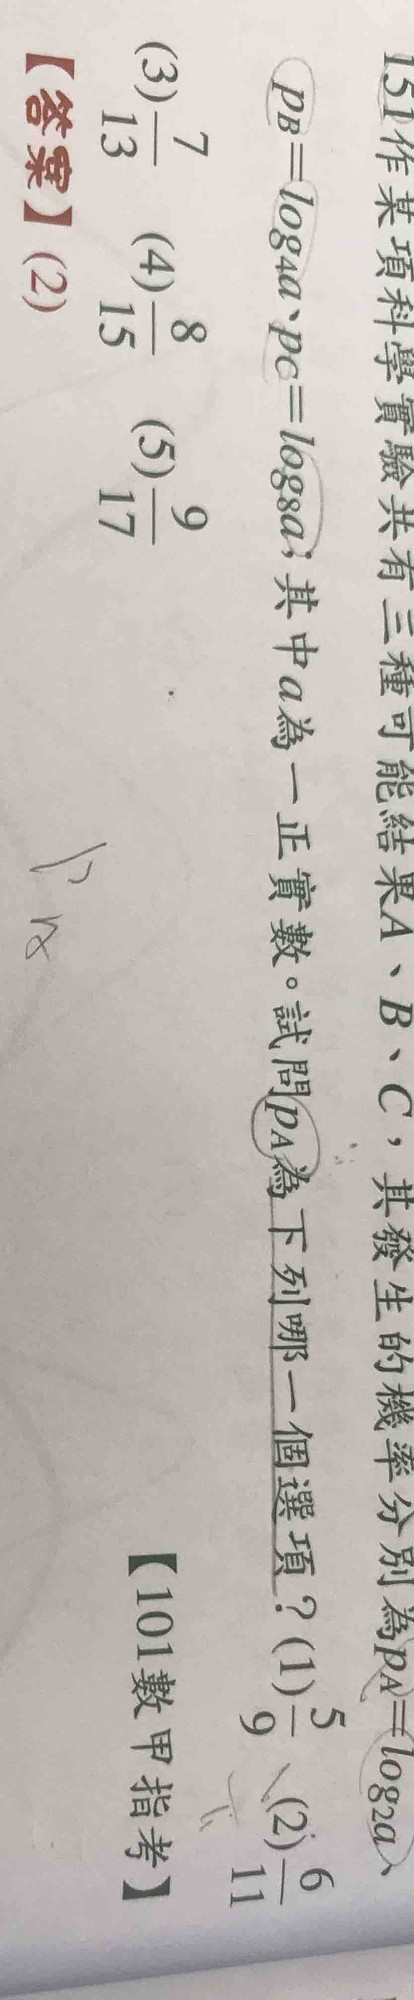 151作某項科學實驗共有三種可能結果A、B、C，其發生的機率分別為pA=log2a、
pB=log4a、pC=log8a；其中a為一正實數。試問pA為下列哪一個選項？(1)5/9 (2)6/11
(3)7/13 (4)8/15 (5)9/17 【101數甲指考】
【答案】(2)